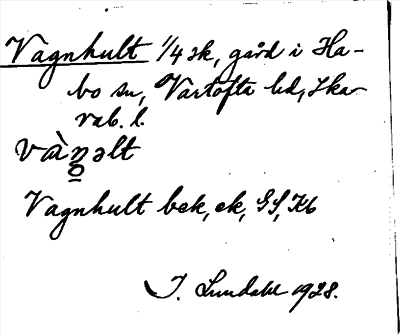 Vagnhult 1/4 sk, gård i Ha-
bo sn, Vartofta hd, Ska-
rab. l.
vàŋ̥əlt
Vagnhult bek, ek, GS, Kb
I. Lundahl 1928.